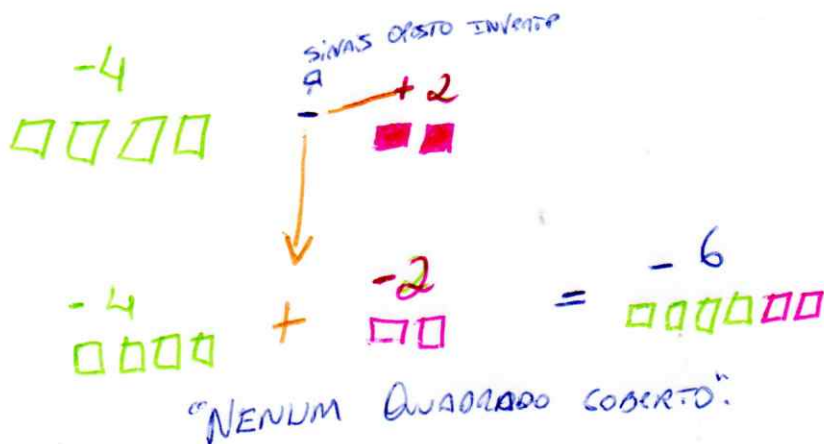 SINAIS OPOSTO INVERTE
-4
- +2
-4 + -2 = -6
"NENUM QUADRADO COBERTO".